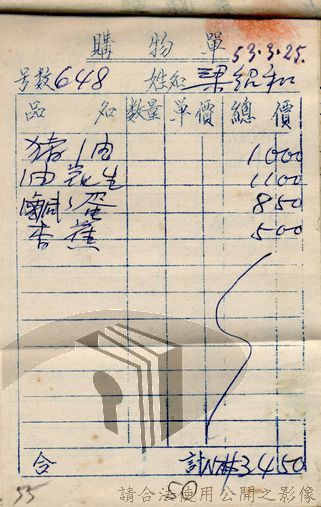 購物單 53.3.25.
号数648 姓名 梁紹和
品名 数量 单價 總價
豬油 1000
油花生 1100
鹹蛋 850
香蕉 500
合計 NT#3450
55 50
請合法使用公開之影像